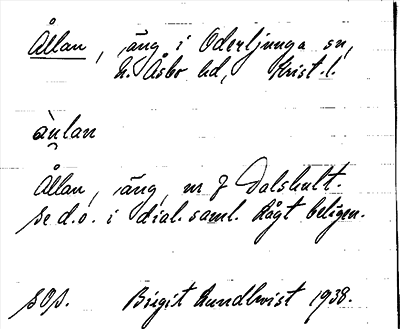 Ållan, äng i Oderljunga sn,
N. Åsbo hd, Krist. l.
ànlan
Ållan, äng, m f Dalshult.
se d.o. i dial. saml. Lågt belägen.
sOp. Brigit Rundkvist 1938.